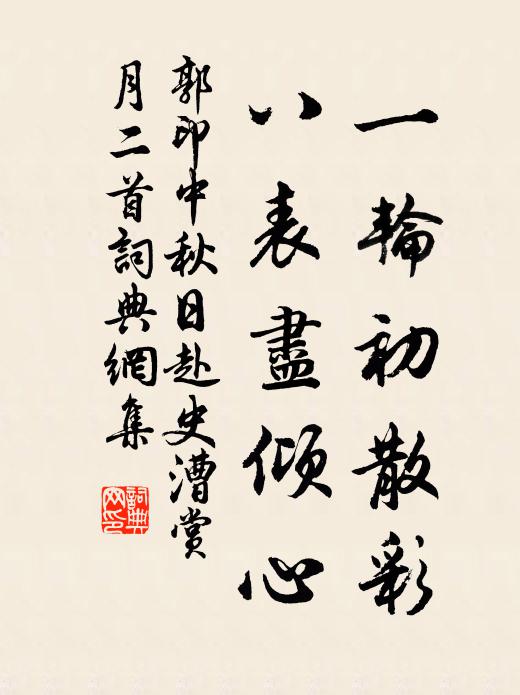 一輪初散彩
八表盡傾心
郭印中秋日赴史漕賞
月二首詞典網集
詞典
网印